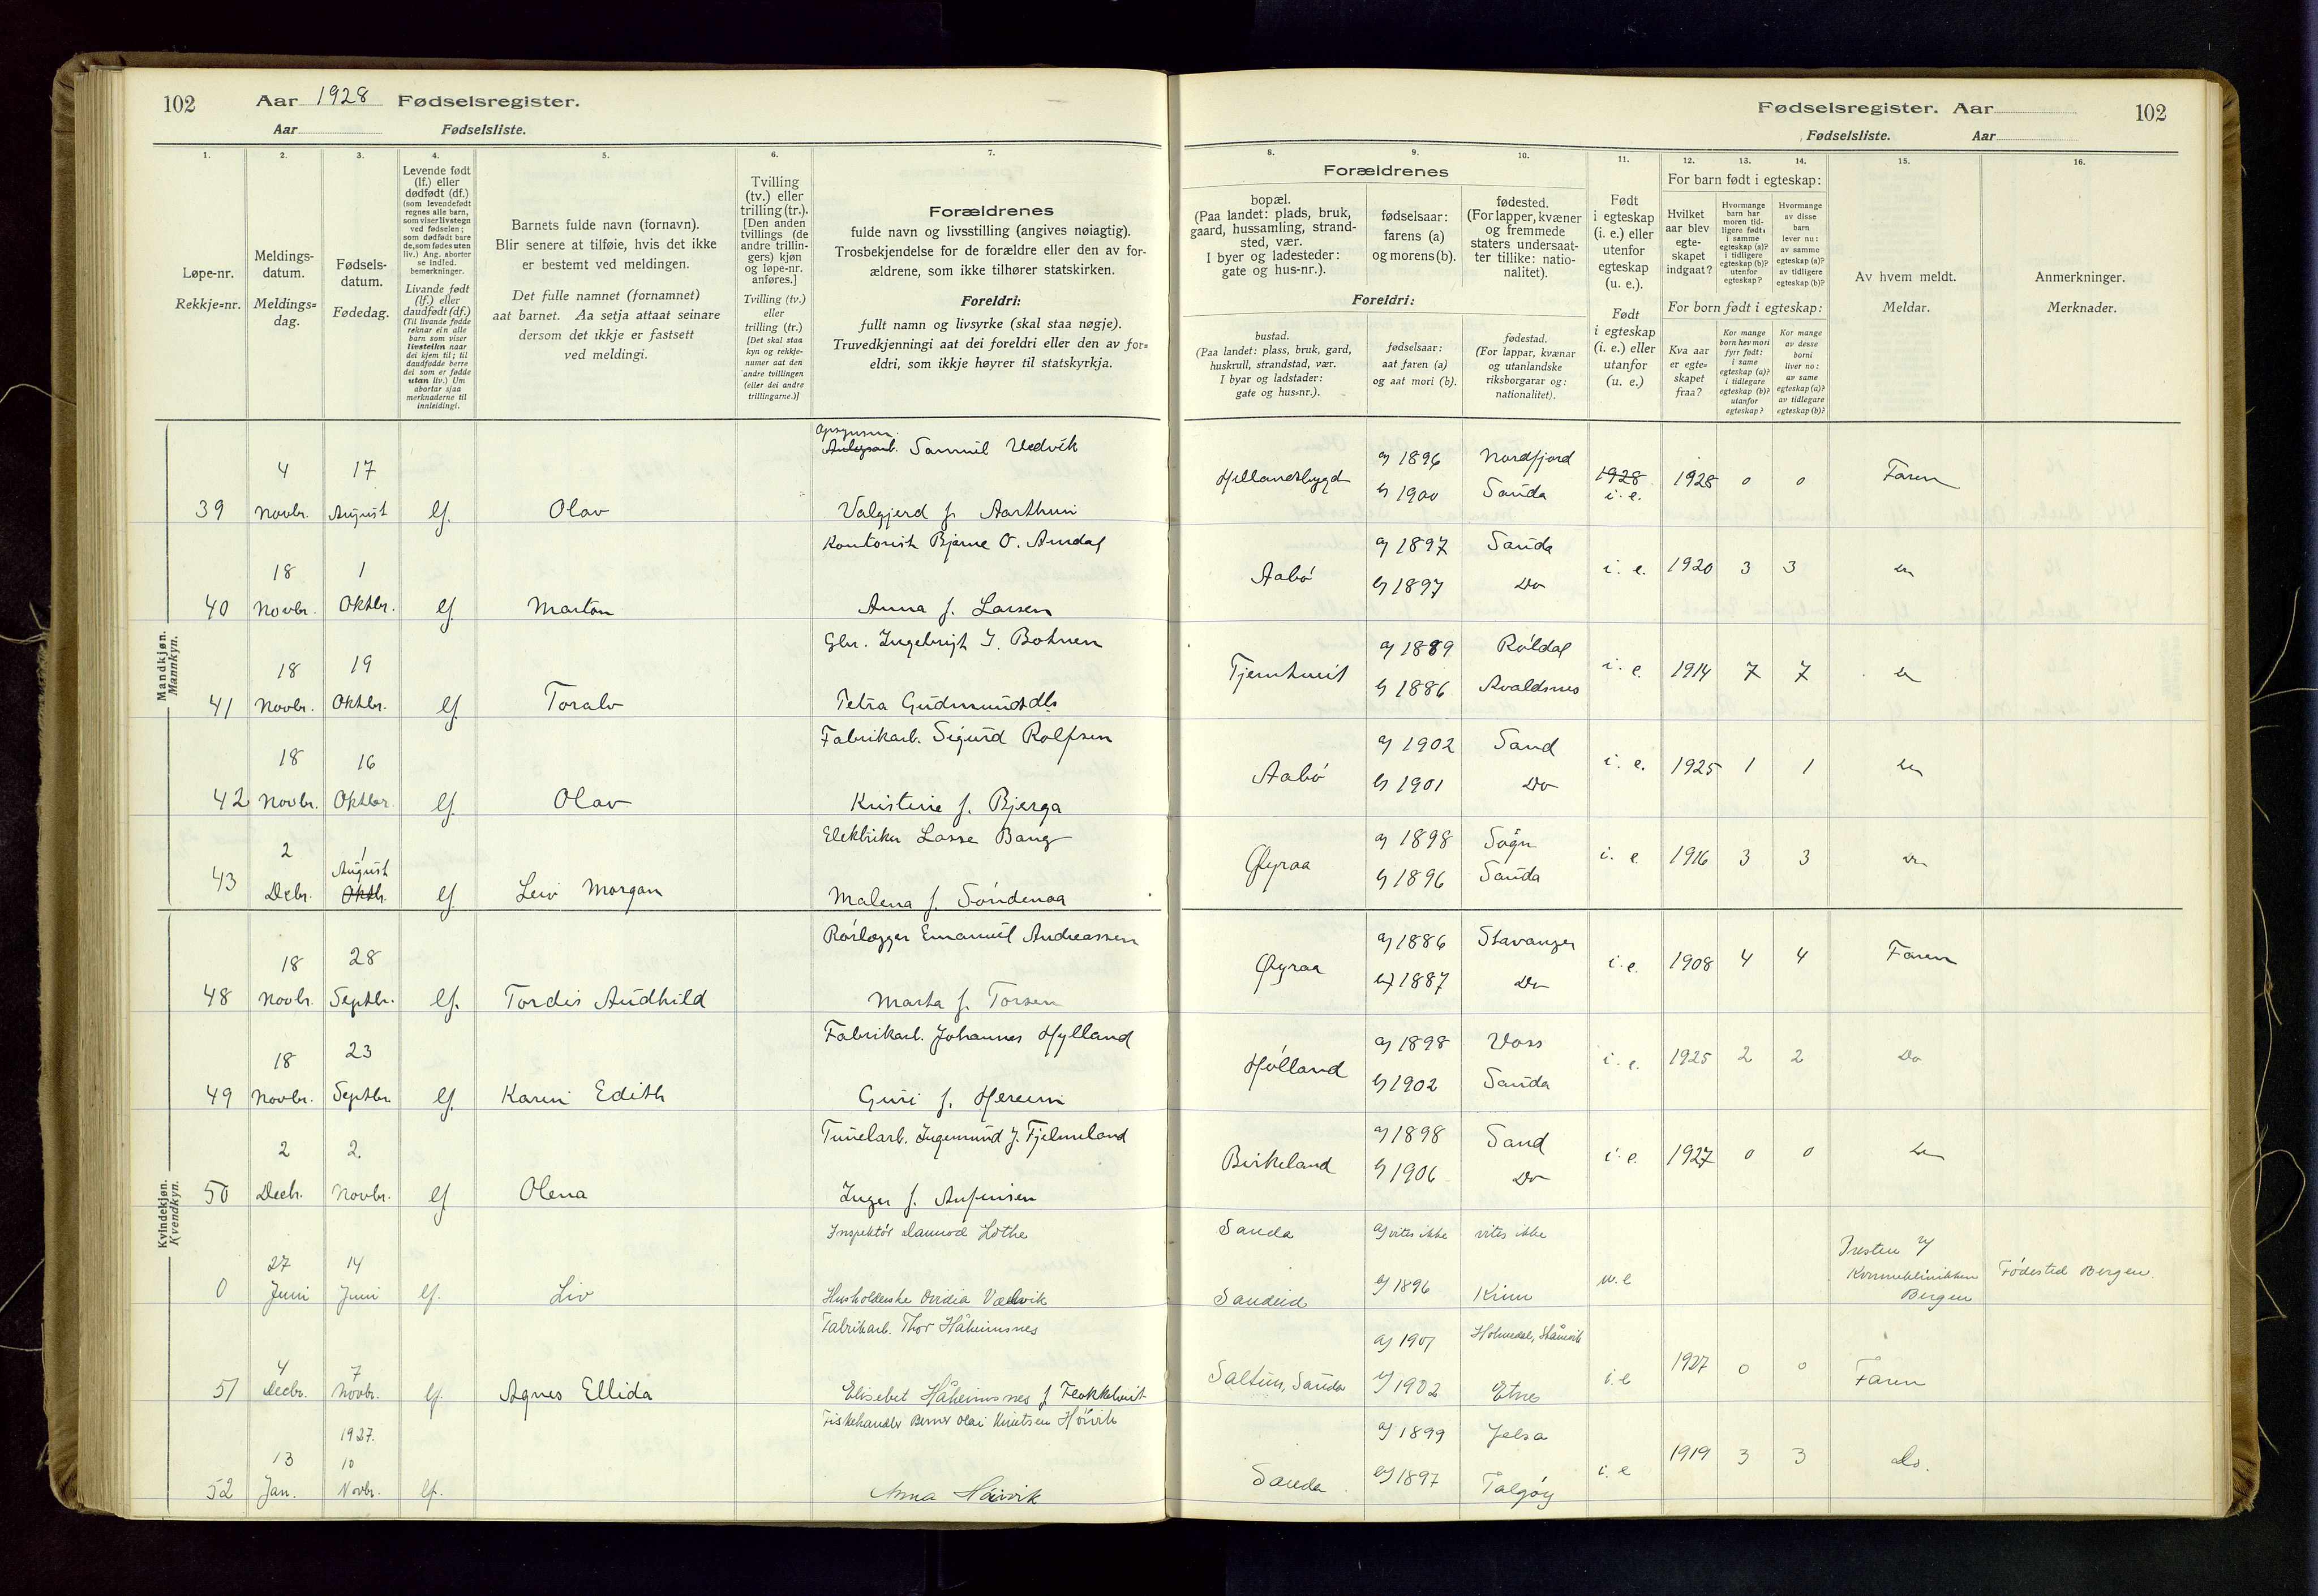 102 Aar 1928 Fødselsregister.
Aar Fødselsliste.
1. 2. 3. 4. 5. 6. 7.
Løpe-nr.
Rekkje=nr.
Meldings-
datum.
Meldings=
dag.
Fødsels-
datum.
Fødedag.
Levende født
(lf.) eller
dødfødt (df.)
(som levendefødt
regnes alle barn,
som viser livstegn
ved fødselen;
som dødfødt bare
de, som fødes uten
liv.) Ang. aborter
se indled.
bemerkninger.
Livande født
(lf.) eller
daudfødt (df.)
(Til livande fødde
reknar ein alle
barn som viser
livsteikn naar
dei kjem til; til
daudfødde berre
dei som er fødde
utan liv.) Um
abortar sjaa
merknaderne til
innleidingi.
Barnets fulde navn (fornavn).
Blir senere at tilføie, hvis det ikke
er bestemt ved meldingen.
Det fulle namnet (fornamnet)
aat barnet. Aa setja attaat seinare
dersom det ikkje er fastsett
ved meldingi.
Tvilling
(tv.) eller
trilling (tr.).
[Den anden
tvillings (de
andre trillin-
gers) kjøn
og løpe-nr.
anføres.]
Tvilling (tv.)
eller
trilling (tr.)
[Det skal staa
kyn og rekkje-
numer aat den
andre tvillingen
(eller dei andre
trillingarne.)]
Forældrenes
fulde navn og livsstilling (angives nøiagtig).
Trosbekjendelse for de forældre eller den av for-
ældrene, som ikke tilhører statskirken.
Foreldri:
fullt namn og livsyrke (skal staa nøgje).
Truvedkjenningi aat dei foreldri eller den av for=
eldri, som ikkje høyrer til statskyrkja.
Fødselsregister. Aar 102
Fødselsliste. Aar
8. 9. 10. 11. 12. 13. 14. 15. 16.
Forældrenes
bopæl.
(Paa landet: plads, bruk,
gaard, hussamling, strand-
sted, vær.
I byer og ladesteder:
gate og hus-nr.).
fødselsaar:
farens (a)
og morens (b).
fødested.
(For lapper, kvæner
og fremmede
staters undersaat-
ter tillike: natio-
nalitet).
Foreldri:
bustad.
(Paa landet: plass, bruk, gard,
huskrull, strandstad, vær.
I byar og ladstader:
gate og hus=nr.).
fødselsaar:
aat faren (a)
og aat mori (b).
fødestad.
(For lappar, kvænar
og utanlandske
riksborgarar og:
nationalitet).
Født
i egteskap
(i. e.) eller
utenfor
egteskap
(u. e.).
Født
i egteskap
(i. e.) eller
utanfor
(u. e.).
For barn født i egteskap:
Hvilket
aar blev
egte-
skapet
indgaat?
Hvormange
barn har
moren tid-
ligere født:
i samme
egteskap (a)?
i tidligere
egteskap (b)?
utenfor
egteskap?
Hvormange
av disse
barn
lever nu:
av samme
egteskap (a)?
av tidligere
egteskap (b)?
For born født i egteskap:
Kva aar
er egte-
skapet
fraa?
Kor mange
born hev mori
fyrr født:
i same
egteskap (a)?
i tidlegare
egteskap (b)?
utanfor
egteskap?
Kor mange
av desse
borni
liver no:
av same
egteskap (a)?
av tidlegare
egteskap (b)?
Av hvem meldt.
Meldar.
Anmerkninger.
Merknader.
Mandkjøn.
Mannkyn.
Opsynsm.
Samuel Vedvik
4 17
39 Novbr. August lf. Olav Valgjerd f. Aarthun
Hellandsbygd
a) 1896 Nordfjord
b) 1900 Sauda
1928
i. e. 1928 0 0 Faren
Kontorist Bjarne O. Amdal
18 1
40 Novbr. Oktbr. lf. Marton Anna f. Larsen
Aabø
a) 1897 Sauda
b) 1897 Do
i. e. 1920 3 3 Do
Gbr. Ingebrigt I. Botnen
18 19
41 Novbr. Oktbr. lf. Toralv Petra Gudmundsdtr
Tjernhuit
a) 1889 Røldal
b) 1886 Avaldsnes
i. e. 1914 7 7 Do
Fabrikarb. Sigurd Rolfsen
18 16
42 Novbr. Oktbr. lf. Olav Kristine f. Bjerga
Aabø
a) 1902 Sand
b) 1901 Do
i. e. 1925 1 1 Do
Elektriker Lasse Bang
2 1
August
43 Decbr. Oktbr. lf. Leiv Morgan Malena f. Søndenaa
Øyraa
a) 1898 Sogn
b) 1896 Sauda
i. e. 1916 3 3 Do
Kvindekjøn.
Kvendkyn.
Rørlægger Emanuel Andreassen
18 28
48 Novbr. Septbr. lf. Tordis Audhild Marta f. Torsen
Øyraa
a) 1886 Stavanger
b) 1887 Do
i. e. 1908 4 4 Faren
Fabrikarb. Johannes Hylland
18 23
49 Novbr. Septbr lf. Karin Edith Guri f. Hereim
Hølland
a) 1898 Voss
b) 1902 Sauda
i. e. 1925 2 2 Do
Tunelarb. Ingemund J. Fjelmeland
2 2.
50 Decbr. Novbr. lf Olena Inger f. Anfinsen
Birkeland
a) 1898 Sand
b) 1906 Do
i. e. 1927 0 0 Do
Inspektør Lothe
27 14
0 Juni Juni lf. Liv Husholderske Ovidia Vaelvik
Sauda a) vites ikke vites ikke
Saudeid b) 1896
u. e
Presten v/
Kvinneklinikken
Bergen
Fødested Bergen.
Fabrikarb. Thor Håheimsnes
4 7
51 Decbr. Novbr. lf. Agnes Ellida Elisebet Håheimsnes f Flokkehuit
Saltun, Sauda
a) 1901 Holmedal,
b) 1902 Etne
i. e 1927 0 0 Faren
Fiskehandler Berner Olai Knutsen Høivik
1927.
13 10
52 Jan. Novbr. lf. Anna Høivik
Sauda
a) 1899 Jelsa
b) 1897 Talgøy
i. e 1919 3 3 Do.